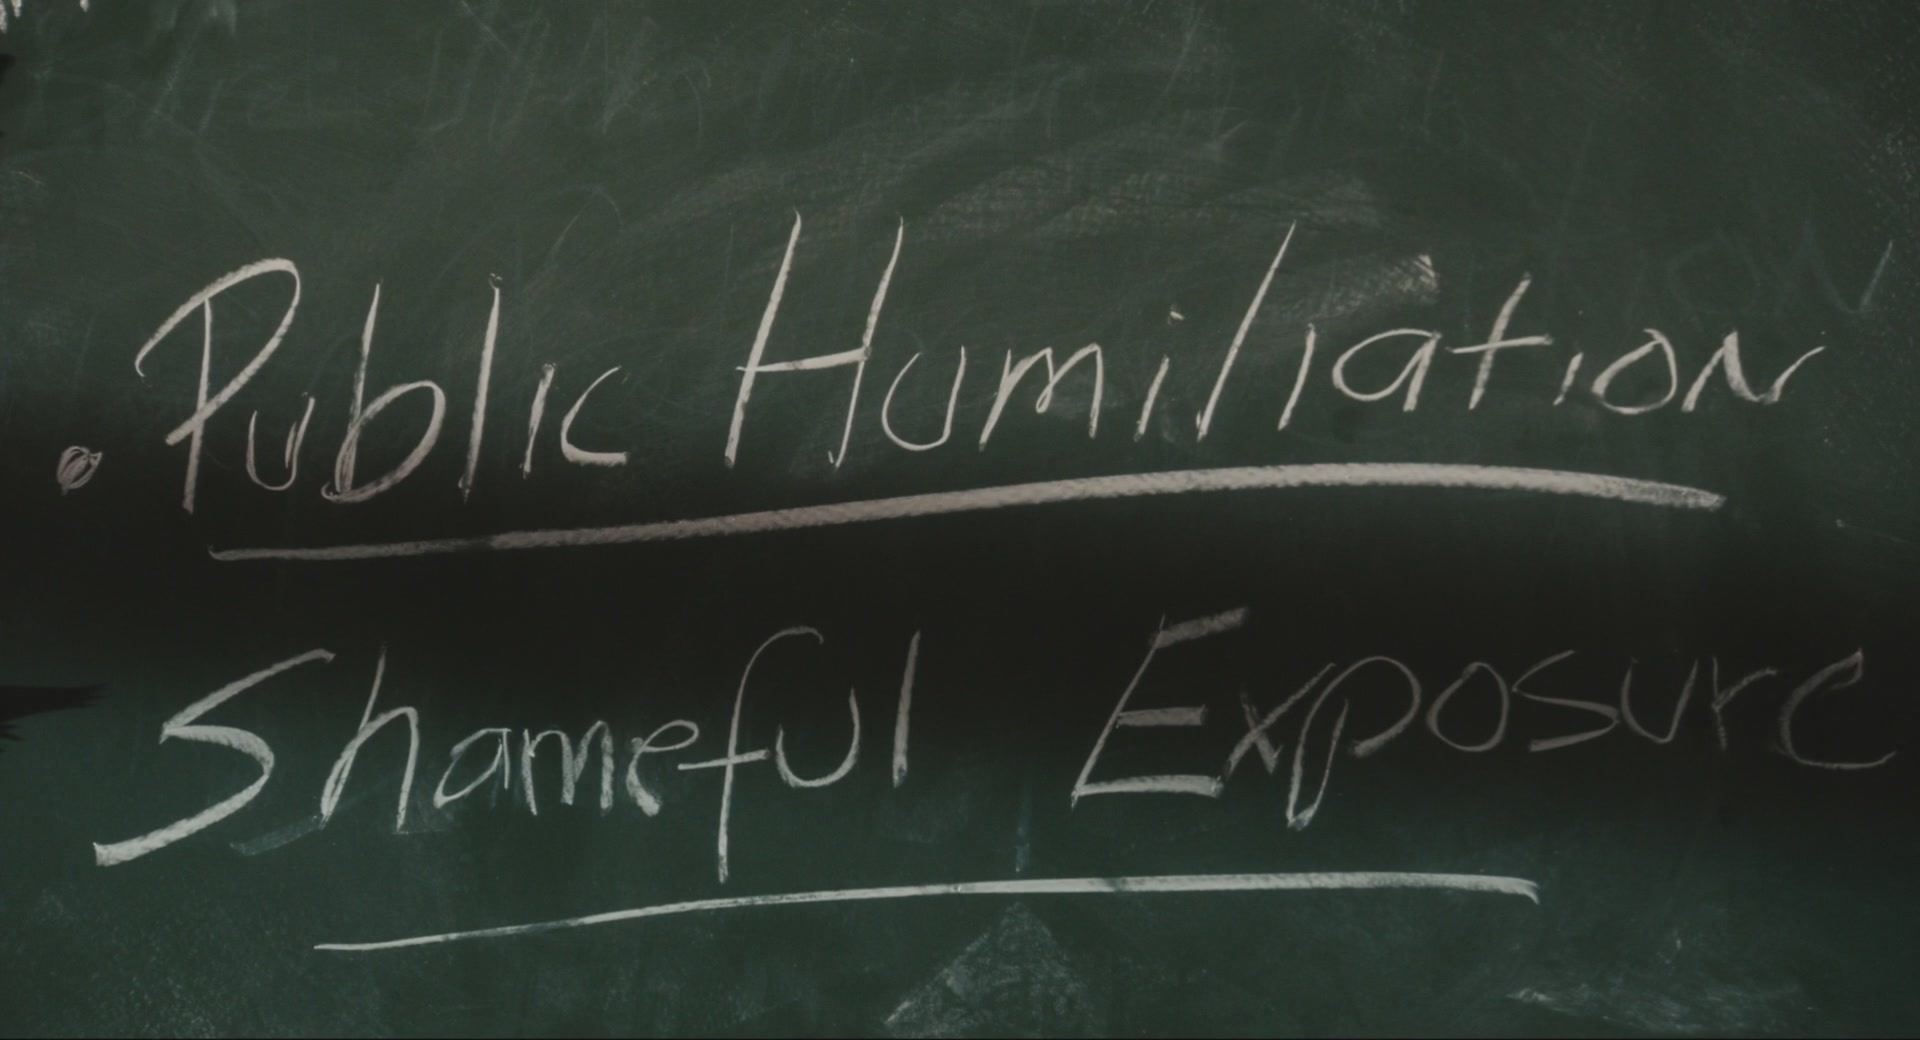 Public Humiliation
Shameful Exposure